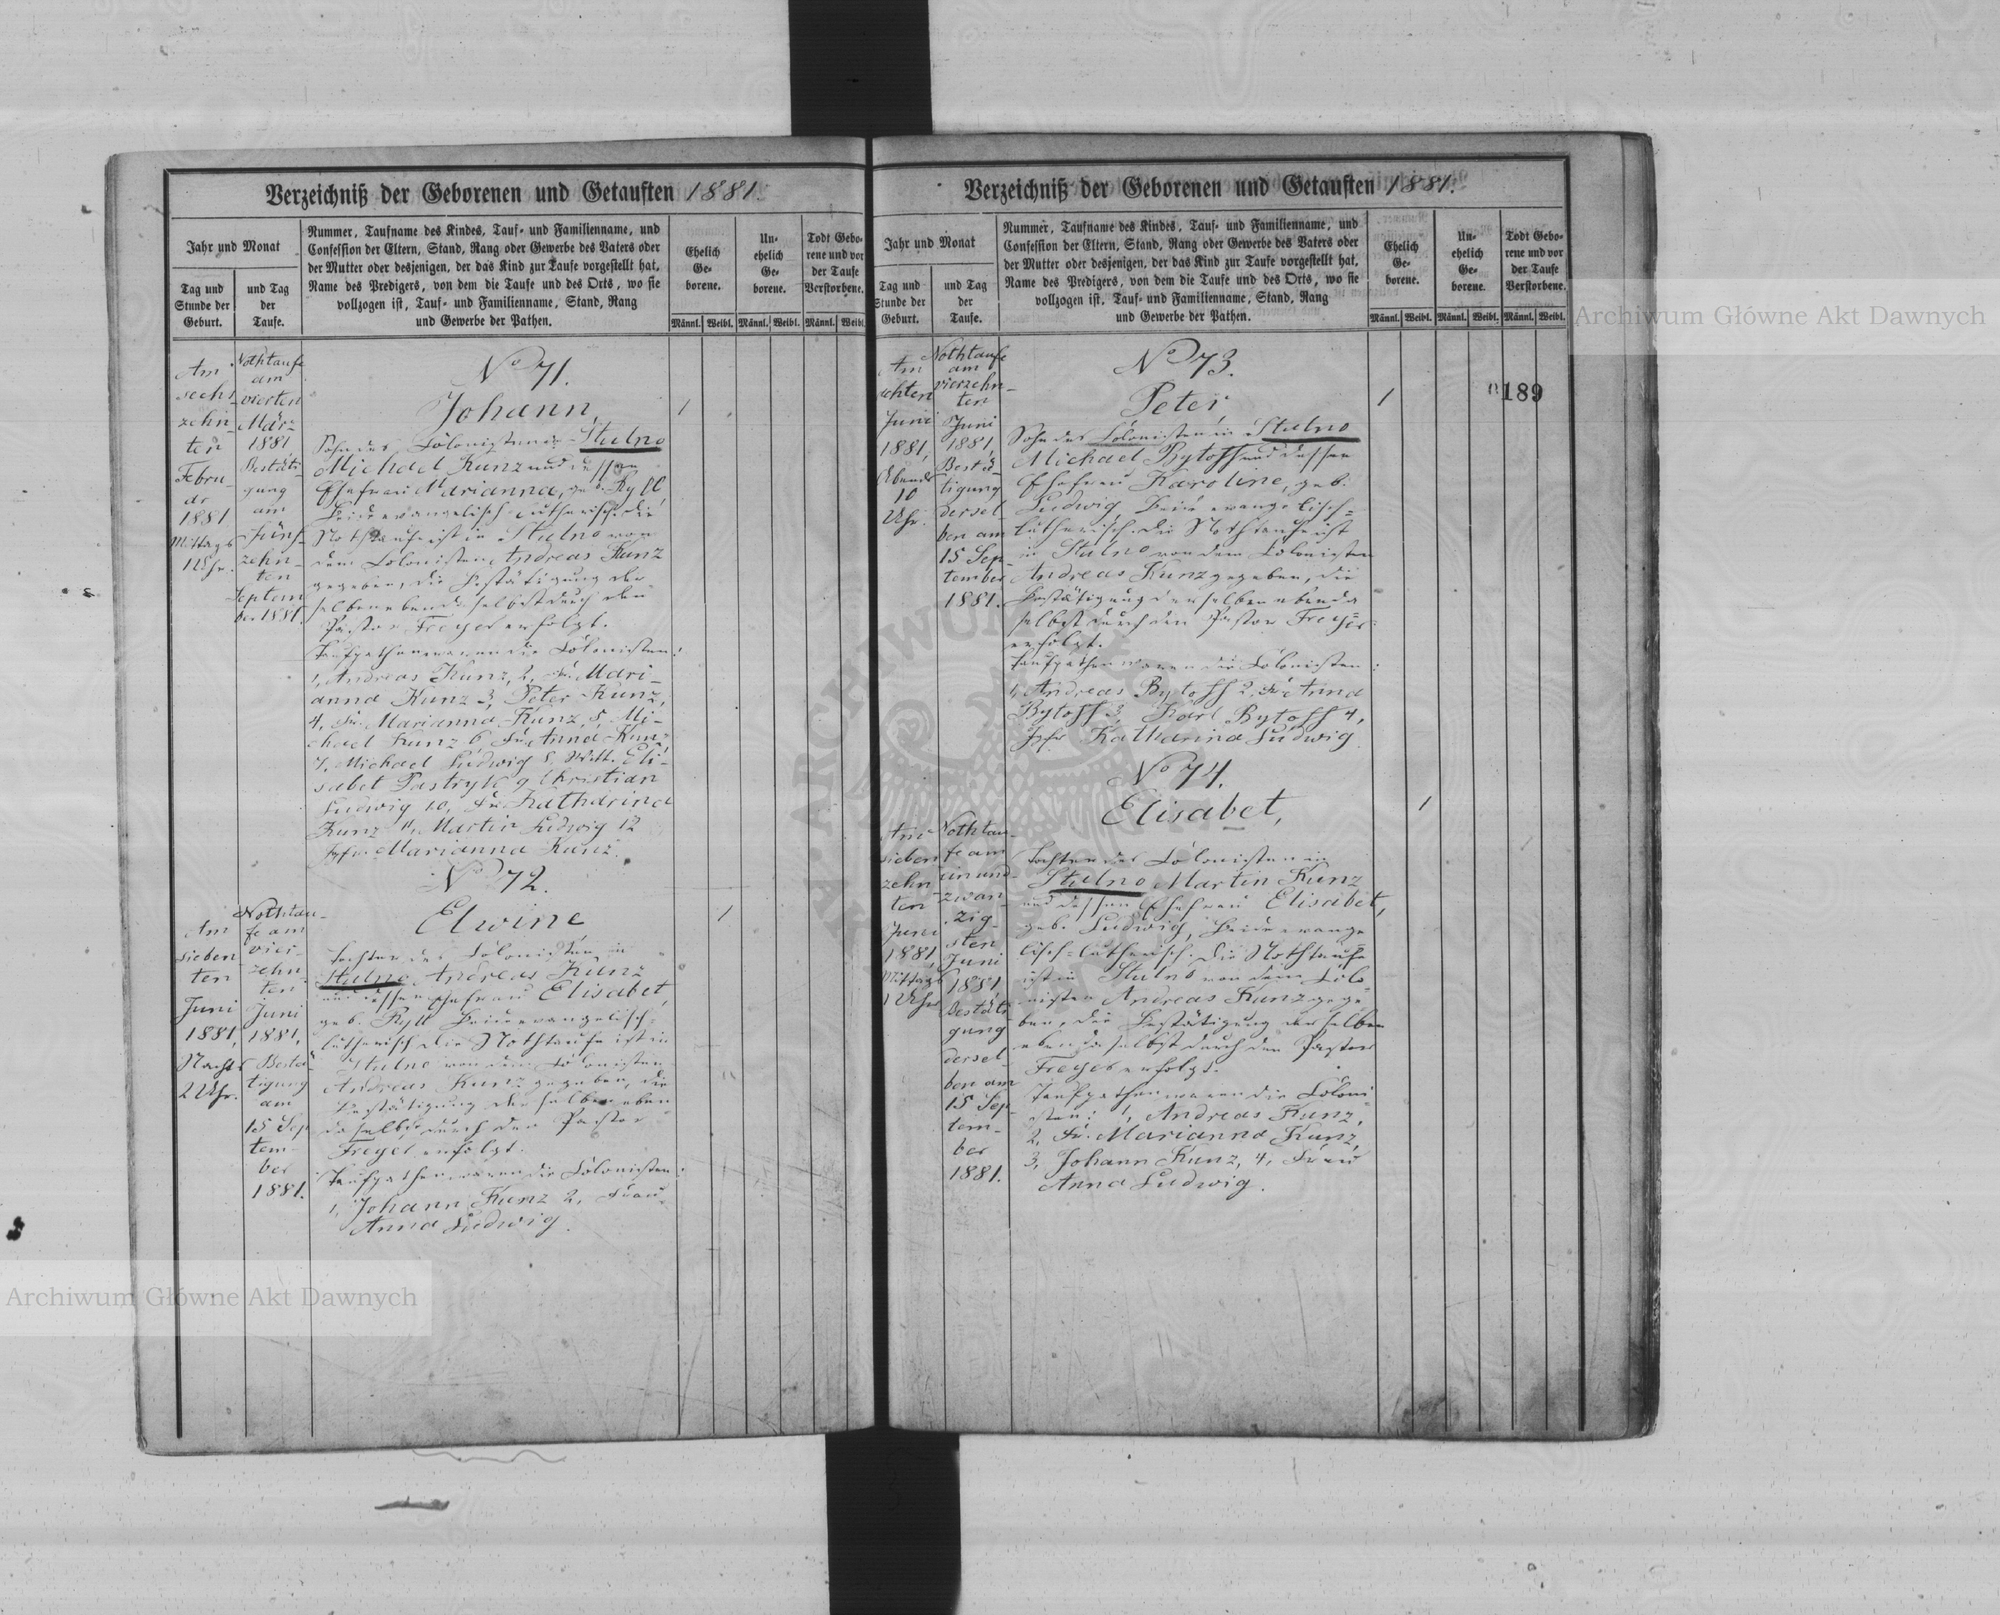 Verzeichniß der Geborenen und Getauften 1881.
Jahr und Monat
Tag und
Stunde der
Geburt.
und Tag
der
Taufe.
Nummer, Taufname des Kindes, Tauf- und Familienname, und
Confession der Eltern, Stand, Rang oder Gewerbe des Vaters oder
der Mutter oder desjenigen, der das Kind zur Taufe vorgestellt hat,
Name des Predigers, von dem die Taufe und des Orts, wo sie
vollzogen ist, Tauf- und Familienname, Stand, Rang
und Gewerbe der Pathen.
Ehelich
Ge-
borene.
Un-
ehelich
Ge-
borene.
Todt Gebo-
rene und vor
der Taufe
Verstorbene.
Männl. Weibl. Männl. Weibl. Männl. Weibl.
Am
sechs
zehn-
ten
Febru-
ar
1881
Mittags
1 Uhr.
Nothtaufe
am
vierten
März
1881
Bestäti-
gung
am
Fünf-
zehn-
ten
Septem
ber 1881.
No 71.
Johann,
1
Sohn des Colonisten in Stulno
Michael Kunz und dessen
Ehefrau Marianna, geb. Ryll
Beide evangelisch-lutherisch. Die
Nothtaufe ist in Stulno von
dem Colonisten Andreas Kunz
gegeben, die Bestätigung der-
selben ebendaselbst durch den
Pastor Freyer erfolgt.
Taufpathen waren die Colonisten:
1, Andreas Kunz, 2, Fr. Mari-
anna Kunz 3, Peter Kunz,
4, Fr. Marianna Kunz, 5, Mi-
chael Kunz 6 Fr. Anna Kunz
7, Michael Ludwig 8, Witt. Eli-
sabet Pastryk 9 Christian
Ludwig 10, Fr Katharina
Kunz 11, Martin Ludwig 12
Jgfr. Marianna Kunz.
Am
sieben
ten
Juni
1881,
Nachts
2 Uhr.
Nothtau-
fe am
vier-
zehn
ten
Juni
1881,
Bestä-
tigung
am
15 Sep
tem-
ber
1881.
No 72.
Elwine
1
Tochter des Colonisten in
Stulno Andreas Kunz
und dessen Ehefrau Elisabet,
geb. Ryll Beide evangelisch-
lutherisch Die Nothtaufe ist in
Stulno von dem Colonisten
Andreas Kunz gegeben, die
Bestätigung derselben eben
daselbst durch den Pastor
Freyer erfolgt.
Taufpathen waren die Colonisten:
1, Johann Kunz 2, Frau
Anna Ludwig.
Verzeichniß der Geborenen und Getauften 1881.
Jahr und Monat
Tag und
Stunde der
Geburt.
und Tag
der
Taufe.
Nummer, Taufname des Kindes, Tauf- und Familienname, und
Confession der Eltern, Stand, Rang oder Gewerbe des Vaters oder
der Mutter oder desjenigen, der das Kind zur Taufe vorgestellt hat,
Name des Predigers, von dem die Taufe und des Orts, wo sie
vollzogen ist, Tauf- und Familienname, Stand, Rang
und Gewerbe der Pathen.
Ehelich
Ge-
borene.
Un-
ehelich
Ge-
borene.
Todt Gebo-
rene und vor
der Taufe
Verstorbene.
Männl. Weibl. Männl. Weibl. Männl. Weibl.
189
Am
achten
Juni
1881,
Abends
10
Uhr.
Nothtaufe
am
vierzehn-
ten
Juni
1881,
Bestä-
tigung
dersel-
ben am
15 Sep-
tember
1881.
No 73.
Peter,
1
Sohn des Colonisten in Stulno
Michael Bytoff und dessen
Ehefrau Karoline, geb.
Ludwig, Beide evangelisch-
lutherisch. Die Nothtaufe ist
in Stulno von dem Colonisten
Andreas Kunz gegeben, die
Bestätigung derselben ebenda
selbst durch den Pastor Freyer
erfolgt.
Taufpathen waren die Colonisten:
1, Andreas Bytoff 2, Fr Anna
Bytoff 3, Karl Bytoff 4,
Jgfr Katharina Ludwig
Am
sieben
zehn
ten
Juni
1881,
Mittags
1 Uhr
Nothtau-
fe am
ein und
zwan-
zig-
sten
Juni
1881,
Bestäti
gung
dersel-
ben am
15 Sep-
tem-
ber
1881.
No 74.
Elisabet,
1
Tochter des Colonisten in
Stulno Martin Kunz
und dessen Ehefrau Elisabet,
geb. Ludwig, Beide evange
lisch-lutherisch. Die Nothtaufe
ist in Stulno von dem Colo
nisten Andreas Kunz gege-
ben, die Bestätigung derselben
ebendaselbst durch den Pastor
Freyer erfolgt.
Taufpathen waren die Coloni
sten: 1, Andreas Kunz,
2, Fr. Marianna Kunz,
3, Johann Kunz, 4, Frau
Anna Ludwig.
Archiwum Główne Akt Dawnych
Archiwum Główne Akt Dawnych